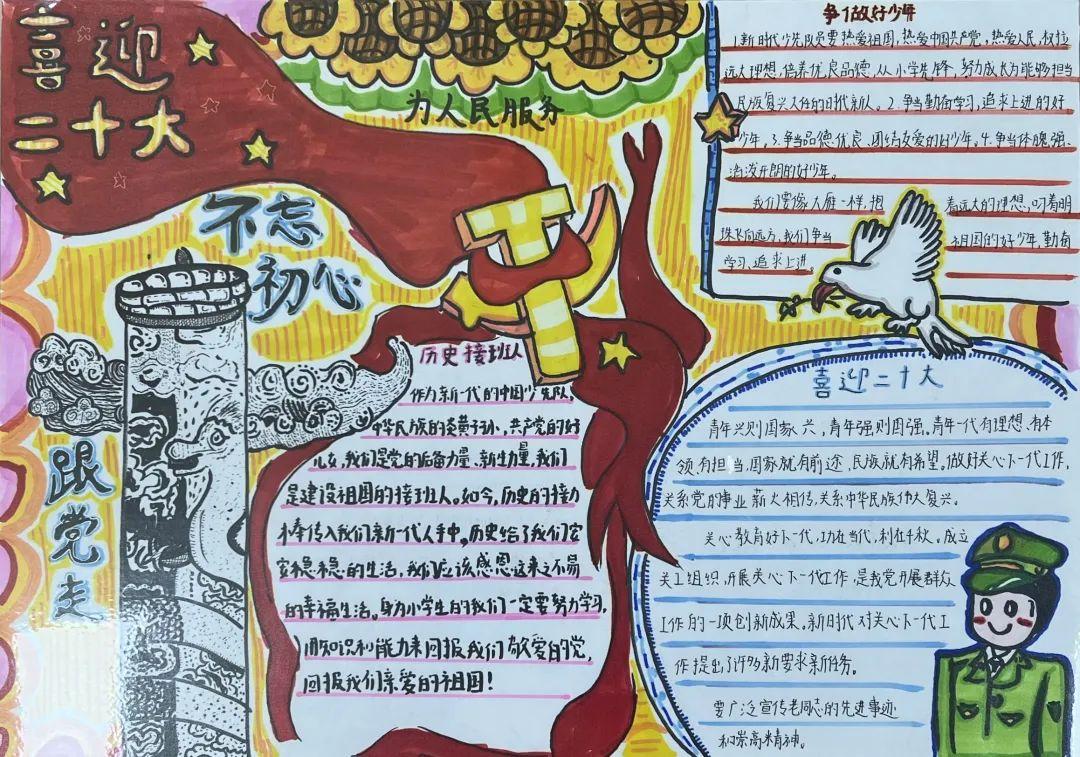 喜迎
二十大
为人民服务
不忘
初心
跟党走
争做好少年
1.新时代少先队员要热爱祖国,热爱中国共产党,热爱人民,树立
远大理想,培养优良品德,从小学先锋,努力成长为能够担当
民族复兴大任的时代新人。2.争当勤奋学习,追求上进的好
少年。3.争当品德优良、团结友爱的好少年。4.争当体魄强、
活泼开朗的好少年。
我们要像大雁一样,抱着远大的理想,叼着明
珠飞向远方,我们争当祖国的好少年,勤奋
学习、追求上进。
历史接班人
作为新一代的中国少先队,
中华民族的炎黄子孙,共产党的好
儿女,我们是党的后备力量、新生力量,我们
是建设祖国的接班人。如今,历史的接力
棒传入我们新一代人手中。历史给了我们安
安稳稳的生活,我们应该感恩这来之不易
的幸福生活。身为小学生的我们一定要努力学习,
用知识和能力来回报我们敬爱的党,
回报我们亲爱的祖国!
喜迎二十大
青年兴则国家兴,青年强则国强。青年一代有理想、有本
领、有担当,国家就有前途、民族就有希望。做好关心下一代工作,
关系党的事业薪火相传,关系中华民族伟大复兴。
关心教育好下一代,功在当代,利在千秋。成立
关工组织,开展关心下一代工作,是我党开展群众
工作的一项创新成果。新时代对关心下一代工
作提出了许多新要求新任务。
要广泛宣传老同志的先进事迹
和崇高精神。